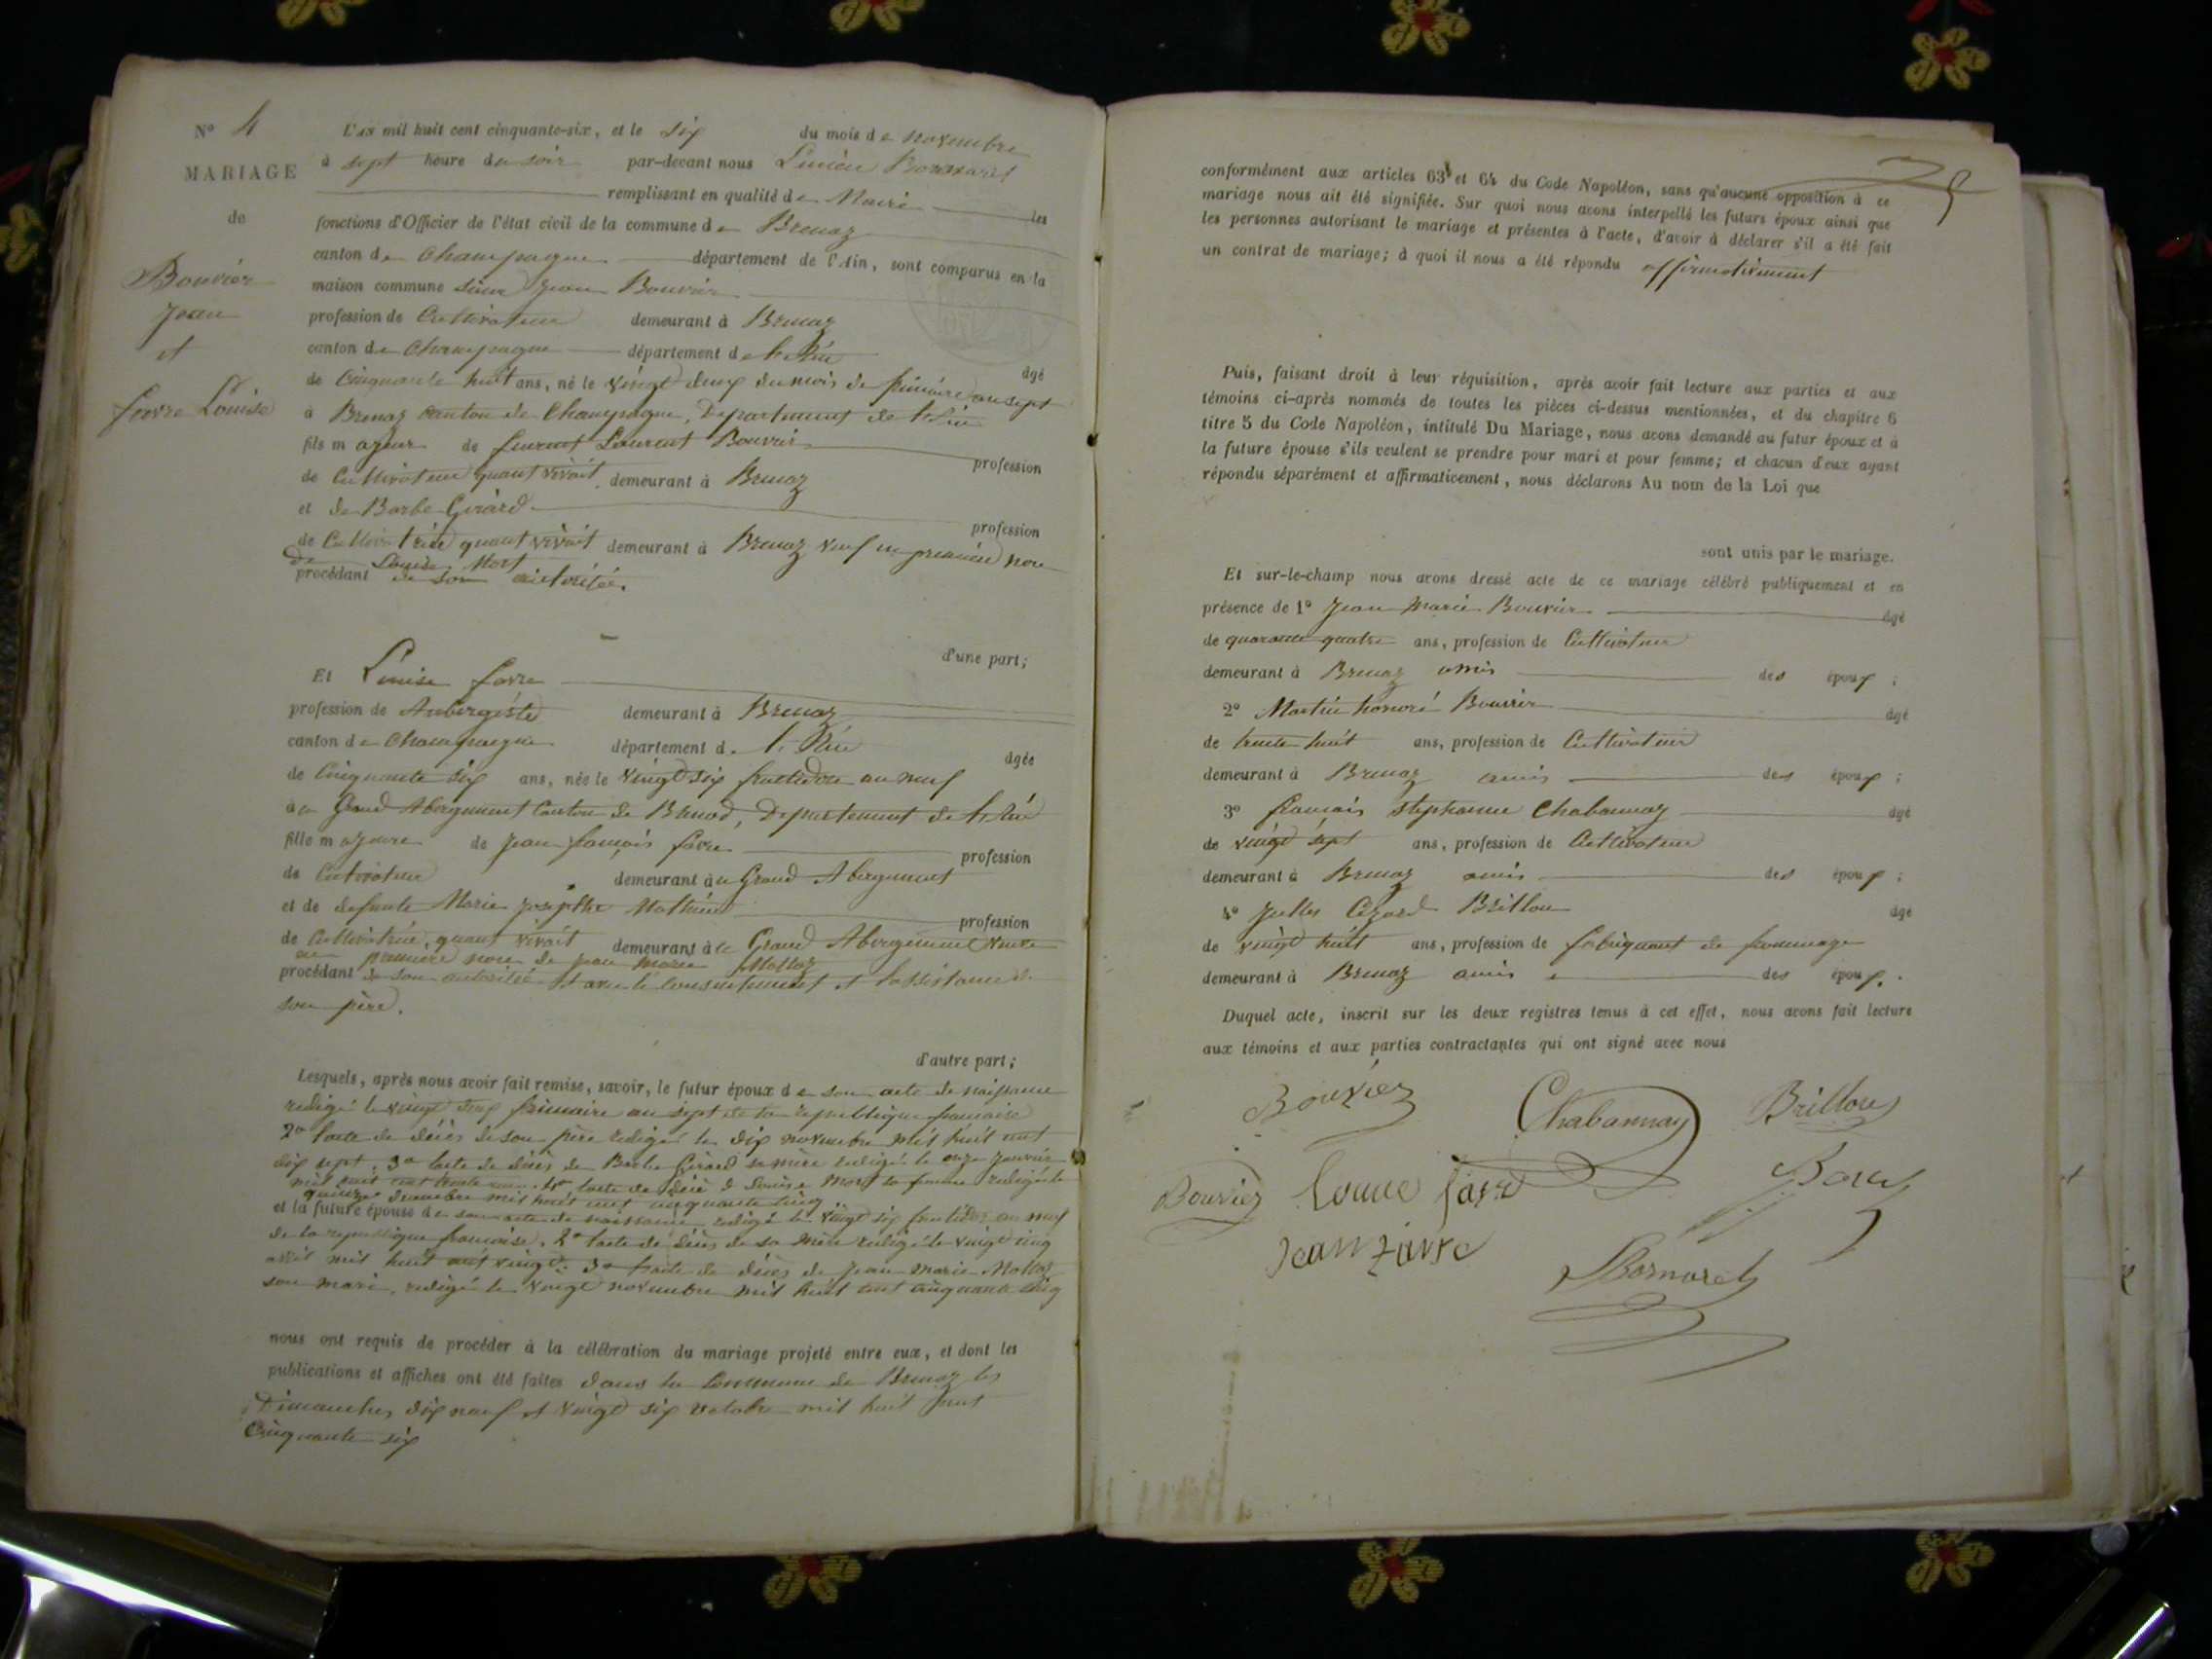 N° 4
MARIAGE
de
Bouvier
Jean
et
favre Louise
L'an mil huit cent cinquante-six, et le six du mois de novembre
à sept heure du soir par-devant nous Lucien Bornard
remplissant en qualité de Maire les
fonctions d'Officier de l'état civil de la commune de Brenaz
canton de Champagne département de l'Ain, sont comparus en la
maison commune sieur Jean Bouvier
profession de Cultivateur demeurant à Brenaz
canton de Champagne département de l'Ain
âgé
de Cinquante huit ans, né le vingt deux du mois de frimaire an sept
à Brenaz canton de Champagne, Département de l'Ain
fils majeur de Laurent Bouvier
profession
de Cultivateur quant vivait demeurant à Brenaz
et de Barbe Girard
profession
de Cultivatrice quant vivait demeurant à Brenaz veuf en première noce
De Louise Mort
procédant de son autoritée.
d'une part;
Et Louise favre
profession de Aubergiste demeurant à Brenaz
canton de Champagne département de l'Ain
âgée
de Cinquante six ans, née le vingt six fructidor an neuf
au Grand Abergement Canton de Brenod, Département de l'Ain
fille majeure de Jean françois favre
profession
de Cultivateur demeurant au Grand Abergement
et de defunte Marie josephte Mathieu
profession
de Cultivatrice, quant vivait demeurant au Grand Abergement veuve
en première noce de jean marie Mollaz
procédant de son autoritée et avec le consentement et l'assistance de
son père.
d'autre part;
Lesquels, après nous avoir fait remise, savoir, le futur époux de son acte de naissance
redigé le vingt deux frimaire an sept de la republique francaise
2° l'acte de décès de son père redigé le dix novembre mil huit cent
dix sept. 3° l'acte de décès de Barbe Girard sa mère redigé le onze janvier
mil huit cent trente un. 4° l'acte de décè de Louise Mort sa femme redigé le
quinze decembre mil huit cent cinquante cinq
et la future épouse de son acte de naissance redigé le vingt six fructidor an neuf
de la republique francaise. 2° l'acte de décès de sa mère redigé le vingt cinq
avril mil huit cent vingt. 3° l'acte de décès de Jean Marie Mollaz
son mari, redigé le vingt novembre mil huit cent cinquante cinq
nous ont requis de procéder à la célébration du mariage projeté entre eux, et dont les
publications et affiches ont été faites dans la Commune de Brenaz les
Dimanches dix neuf et vingt six octobre mil huit cent
Cinquante six
conformément aux articles 63 et 64 du Code Napoléon, sans qu'aucune opposition à ce
mariage nous ait été signifiée. Sur quoi nous avons interpellé les futurs époux ainsi que
les personnes autorisant le mariage et présentes à l'acte, d'avoir à déclarer s'il a été fait
un contrat de mariage; à quoi il nous a été répondu affirmativement
Puis, faisant droit à leur réquisition, après avoir fait lecture aux parties et aux
témoins ci-après nommés de toutes les pièces ci-dessus mentionnées, et du chapitre 6
titre 5 du Code Napoléon, intitulé Du Mariage, nous avons demandé au futur époux et à
la future épouse s'ils veulent se prendre pour mari et pour femme; et chacun d'eux ayant
répondu séparément et affirmativement, nous déclarons Au nom de la Loi que
sont unis par le mariage.
Et sur-le-champ nous avons dressé acte de ce mariage célébré publiquement et en
présence de 1° Jean Marie Bouvier âgé
de quarante quatre ans, profession de Cultivateur
demeurant à Brenaz amis des époux;
2° Martin honoré Bouvier âgé
de trente huit ans, profession de Cultivateur
demeurant à Brenaz amis des époux;
3° francois stephanne Chabannay âgé
de vingt sept ans, profession de Cultivateur
demeurant à Brenaz amis des époux;
4° Julles Cézard Brillon âgé
de vingt huit ans, profession de fabriquant de frommage
demeurant à Brenaz amis des époux.
Duquel acte, inscrit sur les deux registres tenus à cet effet, nous avons fait lecture
aux témoins et aux parties contractantes qui ont signé avec nous
Bouvier Chabannay Brillon
Bouvier Louise favre
Jean favre
Bornard